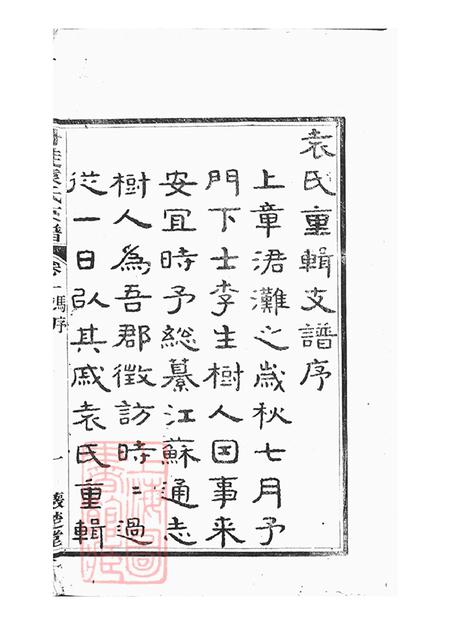 袁氏重輯支譜序
上章涒灘之歲秋七月予
門下士李生樹人因事来
安宜時予總纂江蘇通志
樹人為吾郡徵訪時〻過
從一日以其戚袁氏重輯
袁氏支譜
卷一
馮序
一
上海圖書館藏